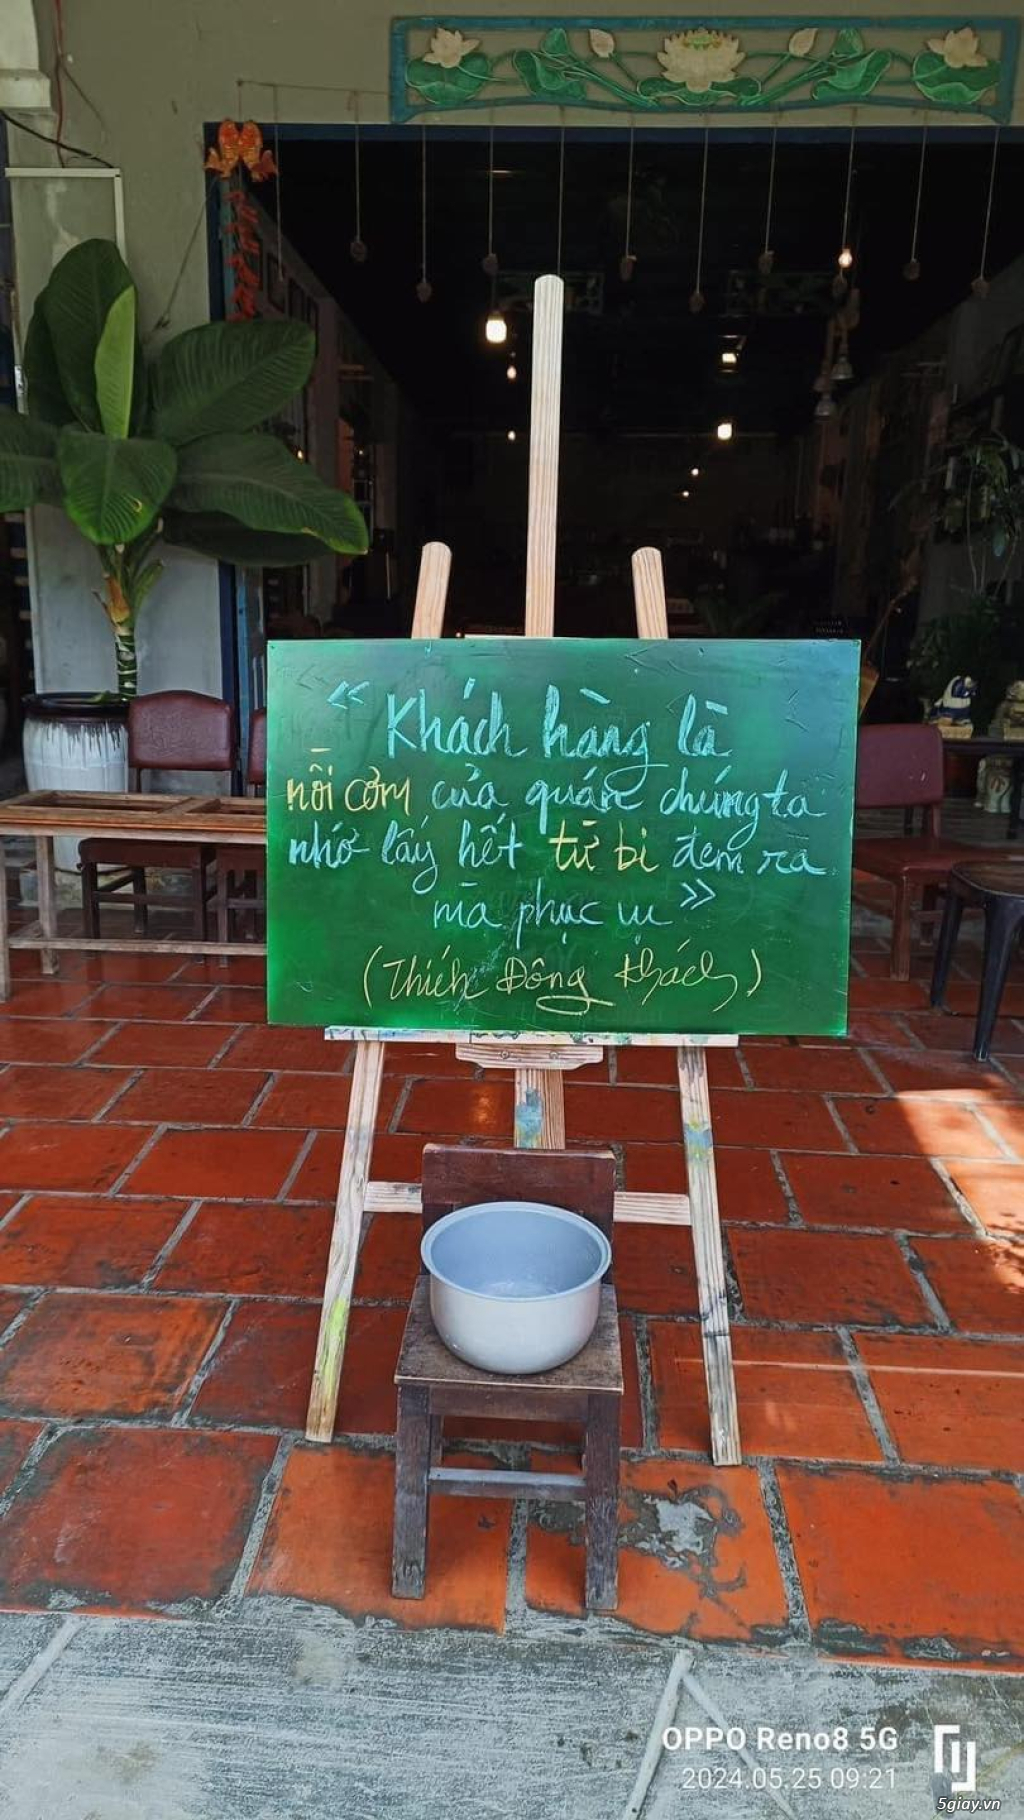 “Khách hàng là
nồi cơm của quán chúng ta
nhớ lấy hết từ bi đem ra
mà phục vụ”
(Thích Đông Khách)
OPPO Reno8 5G
2024.05.25 09:21
5giay.vn